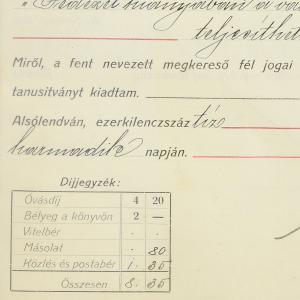 "Fedezet hiányában a
teljesíthet
Miről, a fent nevezett megkereső fél jogai
tanusitványt kiadtam.
Alsólendván, ezerkilenczszáz tiz
harmadik napján.
Dijjegyzék:
Óvásdíj 4 20
Bélyeg a könyvön 2 —
Vitelbér . .
Másolat . 80
Közlés és postabér 1. 35
Összesen 8. 35